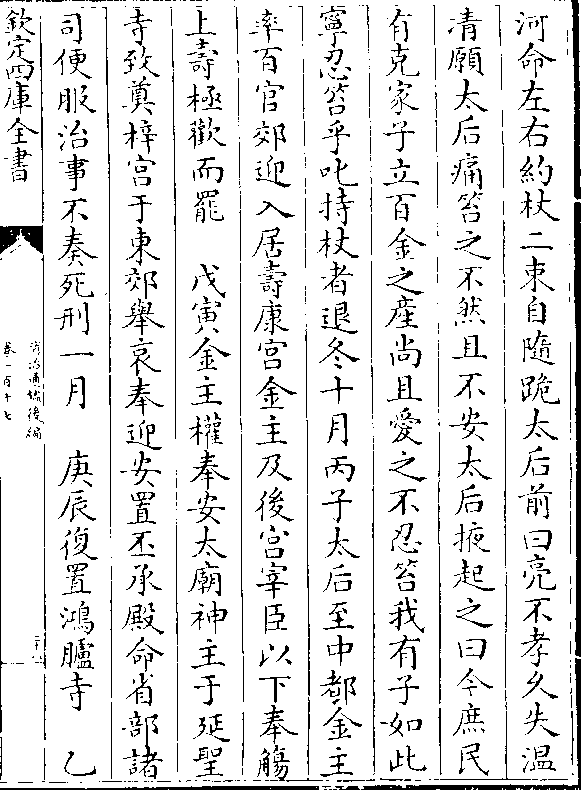 河命左右約杖二束自隨跪太后前曰亮不孝久失溫
凊願太后痛笞之不然且不安太后掖起之曰今庶民
有克家子立百金之產尚且愛之不忍笞我有子如此
寧忍笞乎叱持杖者退冬十月丙子太后至中都金主
率百官郊迎入居壽康宮金主及後宮宰臣以下奉觴
上壽極歡而罷　戊寅金主權奉安太廟神主于延聖
寺致奠梓宮于東郊舉哀奉迎安置丕承殿命省部諸
司便服治事不奏死刑一月　庚辰復置鴻臚寺　乙
欽定四庫全書
資治通鑑後編
卷一百十七